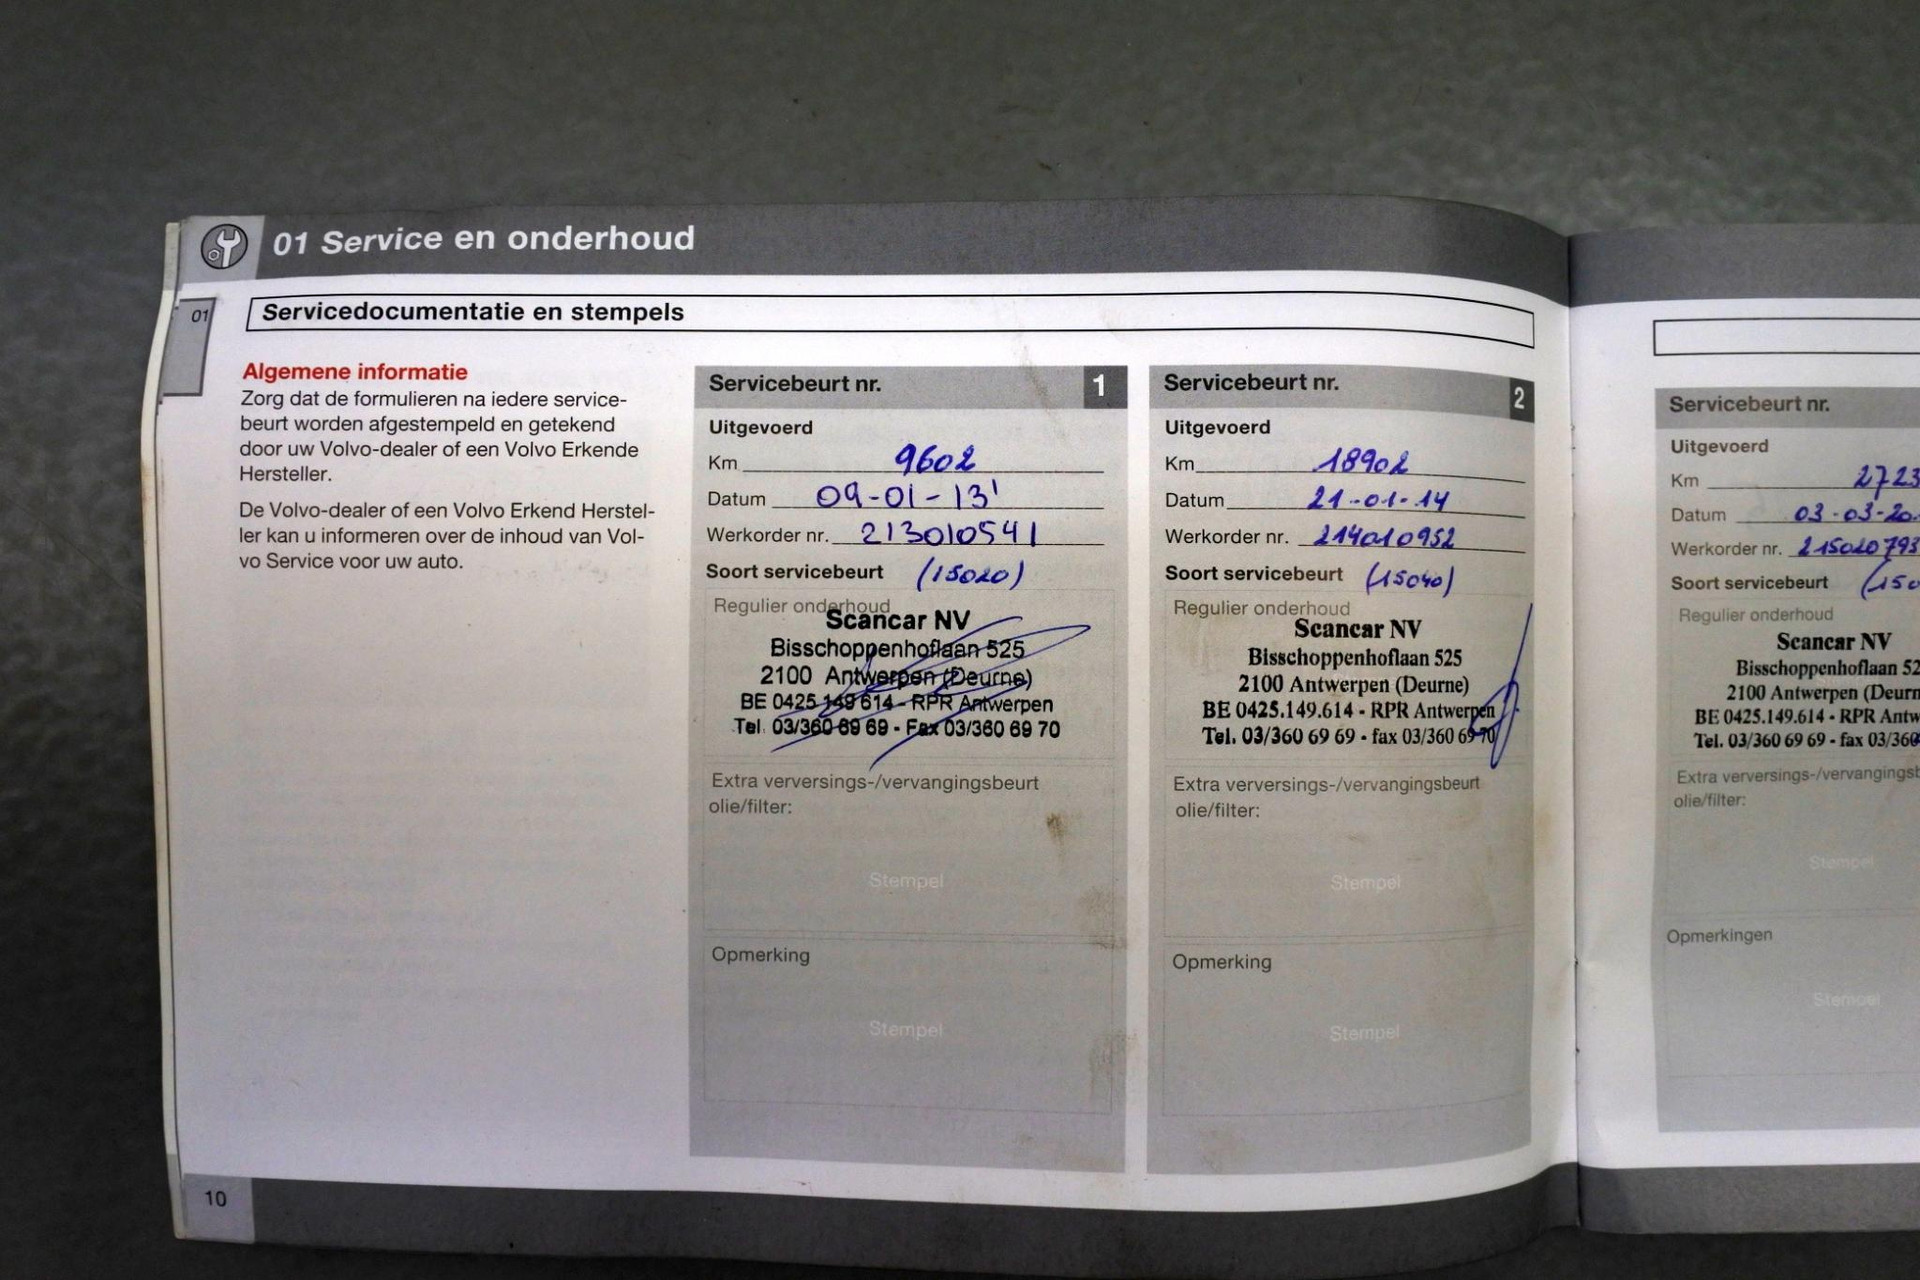 01 Service en onderhoud
01
Servicedocumentatie en stempels
Algemene informatie
Zorg dat de formulieren na iedere service-
beurt worden afgestempeld en getekend
door uw Volvo-dealer of een Volvo Erkende
Hersteller.
De Volvo-dealer of een Volvo Erkend Herstel-
ler kan u informeren over de inhoud van Vol-
vo Service voor uw auto.
10
Servicebeurt nr. 1
Uitgevoerd
Km 9602
Datum 09-01-13'
Werkorder nr. 213010541
Soort servicebeurt (15020)
Regulier onderhoud
Scancar NV
Bisschoppenhoflaan 525
2100 Antwerpen (Deurne)
BE 0425 149 614 - RPR Antwerpen
Tel. 03/360 69 69 - Fax 03/360 69 70
Extra verversings-/vervangingsbeurt
olie/filter:
Stempel
Opmerking
Stempel
Servicebeurt nr. 2
Uitgevoerd
Km 18902
Datum 21-01-14
Werkorder nr. 214010952
Soort servicebeurt (15040)
Regulier onderhoud
Scancar NV
Bisschoppenhoflaan 525
2100 Antwerpen (Deurne)
BE 0425.149.614 - RPR Antwerpen
Tel. 03/360 69 69 - fax 03/360 69 70
Extra verversings-/vervangingsbeurt
olie/filter:
Stempel
Opmerking
Stempel
Servicebeurt nr.
Uitgevoerd
Km 2723
Datum 03-03-20
Werkorder nr. 215020793
Soort servicebeurt (150
Regulier onderhoud
Scancar NV
Bisschoppenhoflaan 52
2100 Antwerpen (Deurn
BE 0425.149.614 - RPR Antw
Tel. 03/360 69 69 - fax 03/360
Extra verversings-/vervangingsb
olie/filter:
Stempel
Opmerkingen
Stempel